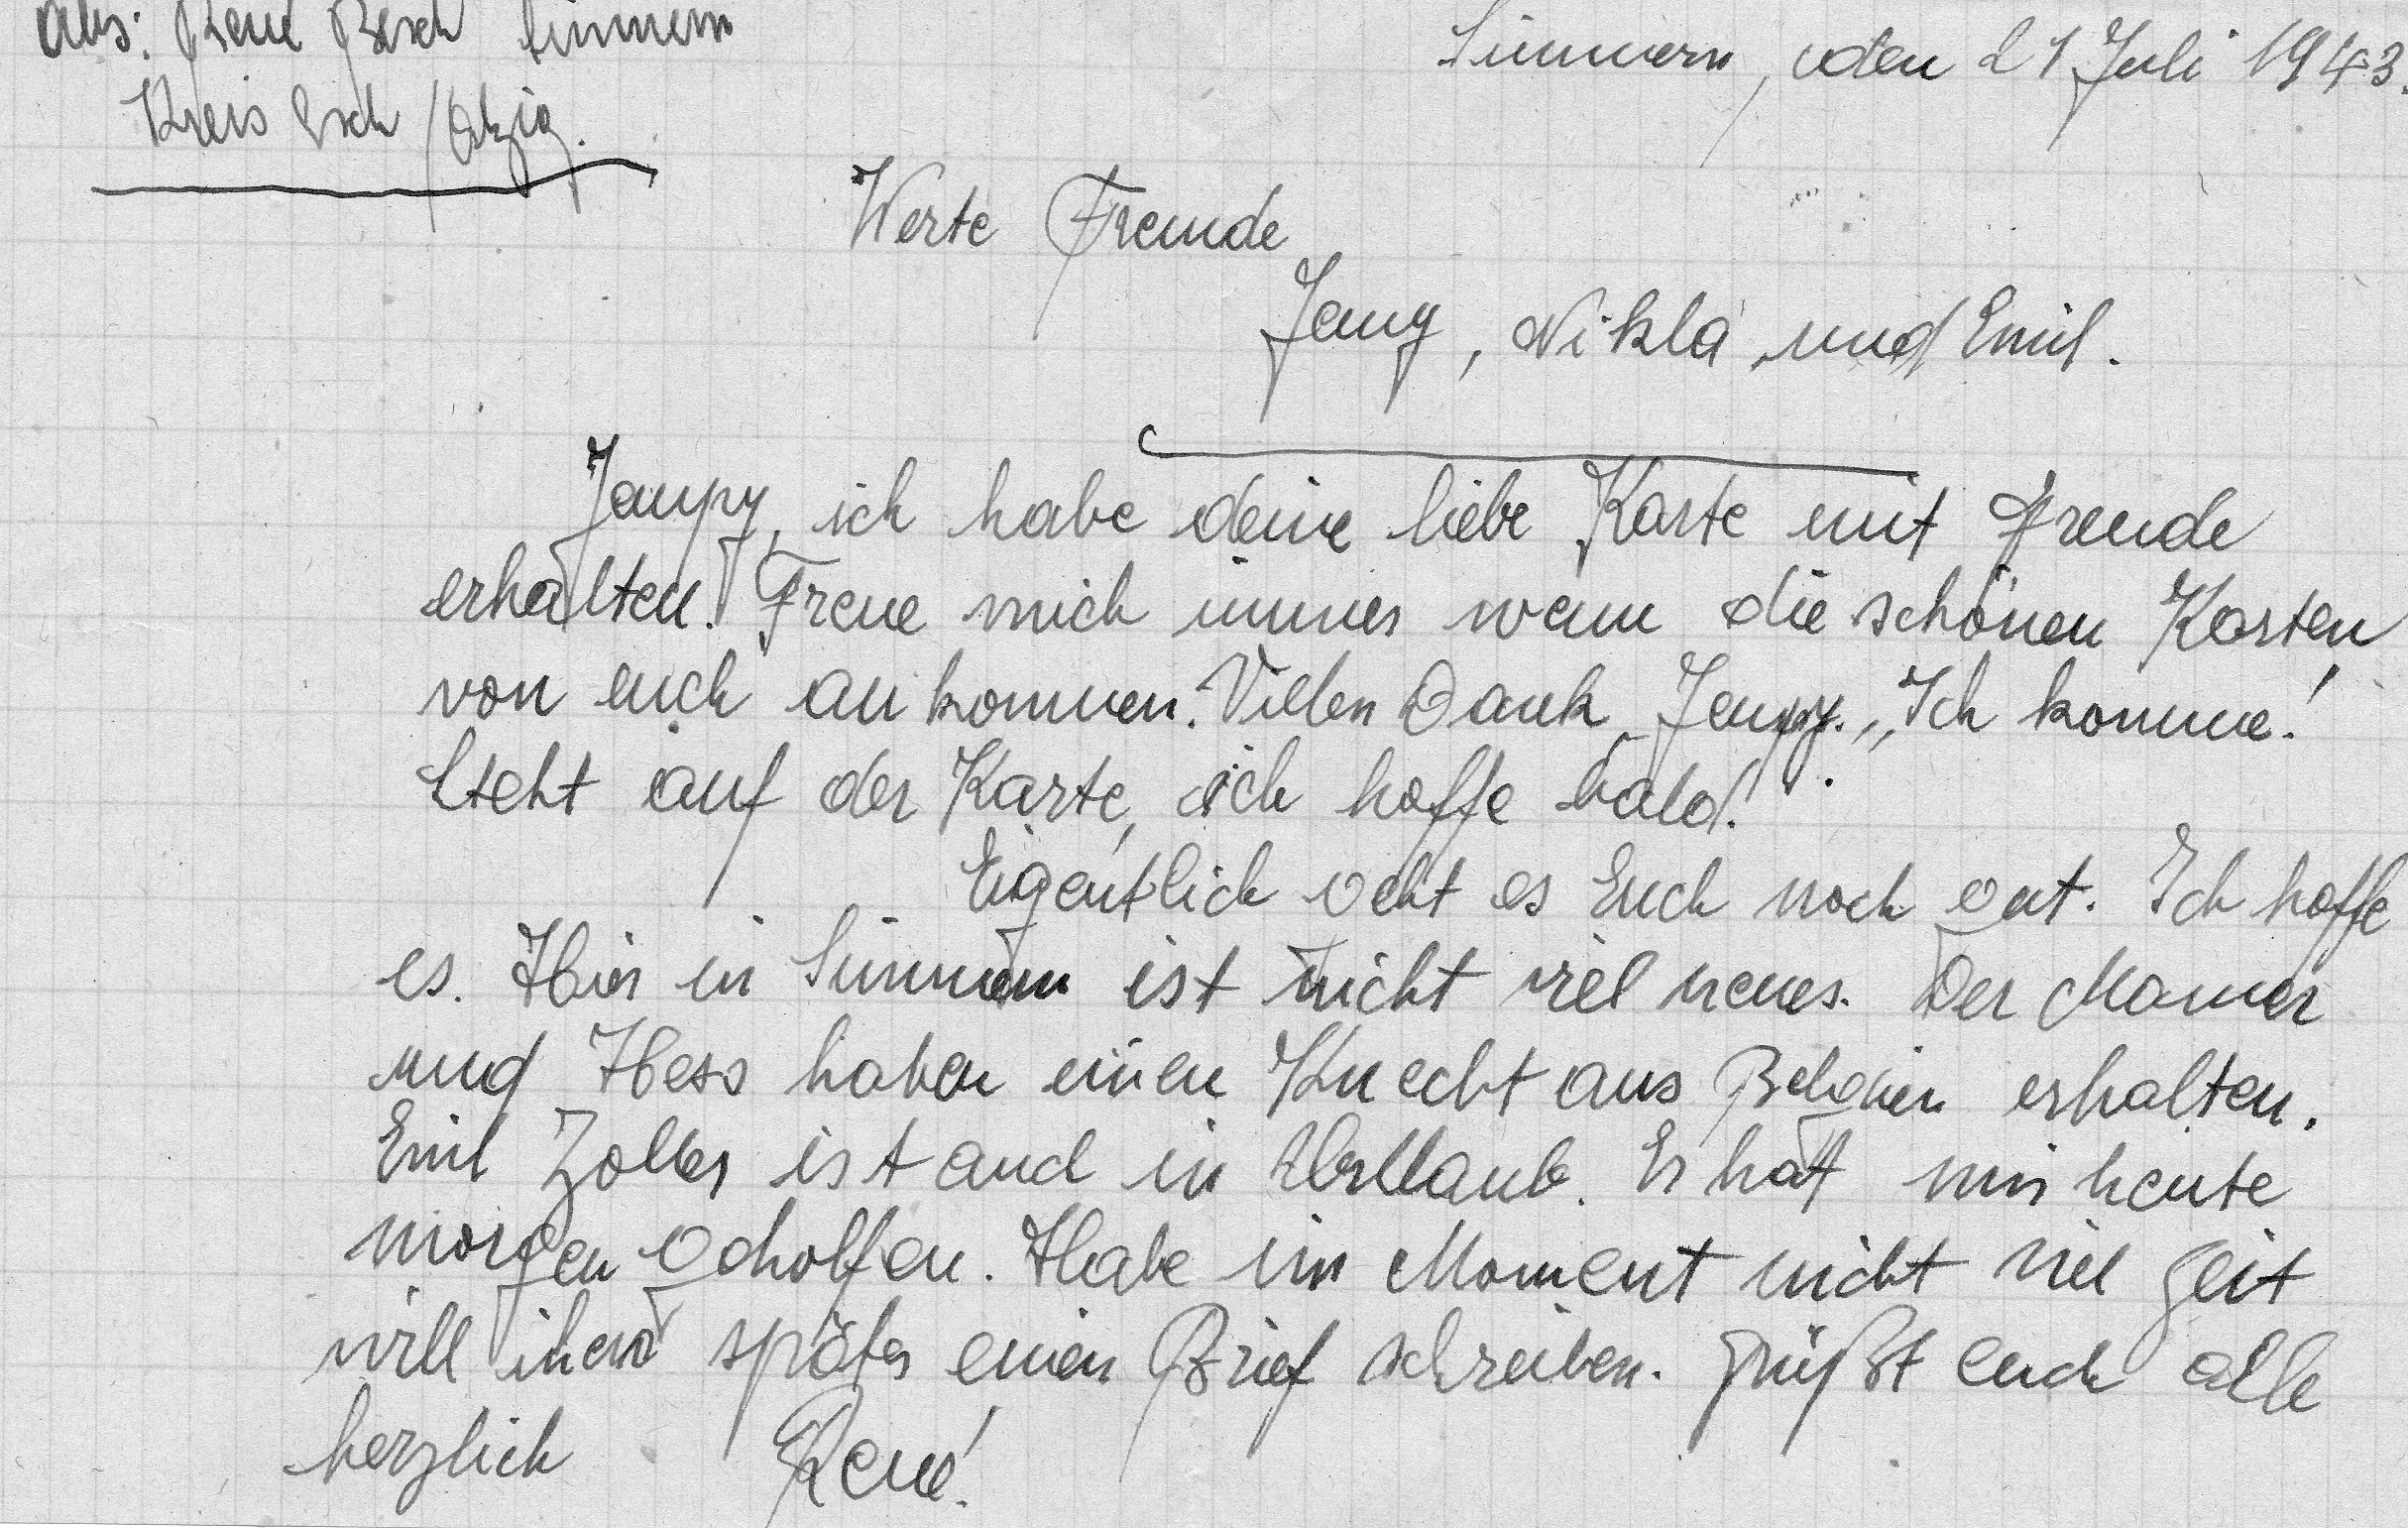 Abs: René Besch Simmern
Kreis Esch / Alzig.
Simmern, den 21 Juli 1943.
Werte Freunde
Jemy, Nikla und Emil.
Jempy, ich habe deine liebe Karte mit freude
erhalten. Freue mich immer wenn die schönen Karten
von euch ankommen. Vielen Dank Jempy. „Ich komme!
Steht auf der Karte, ich hoffe bald!
Eigentlich geht es Euch noch gut. Ich hoffe
es. Hier in Simmern ist nicht viel neues. Der Mamer
und Hess haben einen Knecht aus Belgien erhalten.
Emil Zoller ist auch in Urllaub. Er hat mir heute
morgen geholfen. Habe im Moment nicht viel Zeit
will ihem später einen Brief schreiben. Grüßt euch alle
herzlich René!